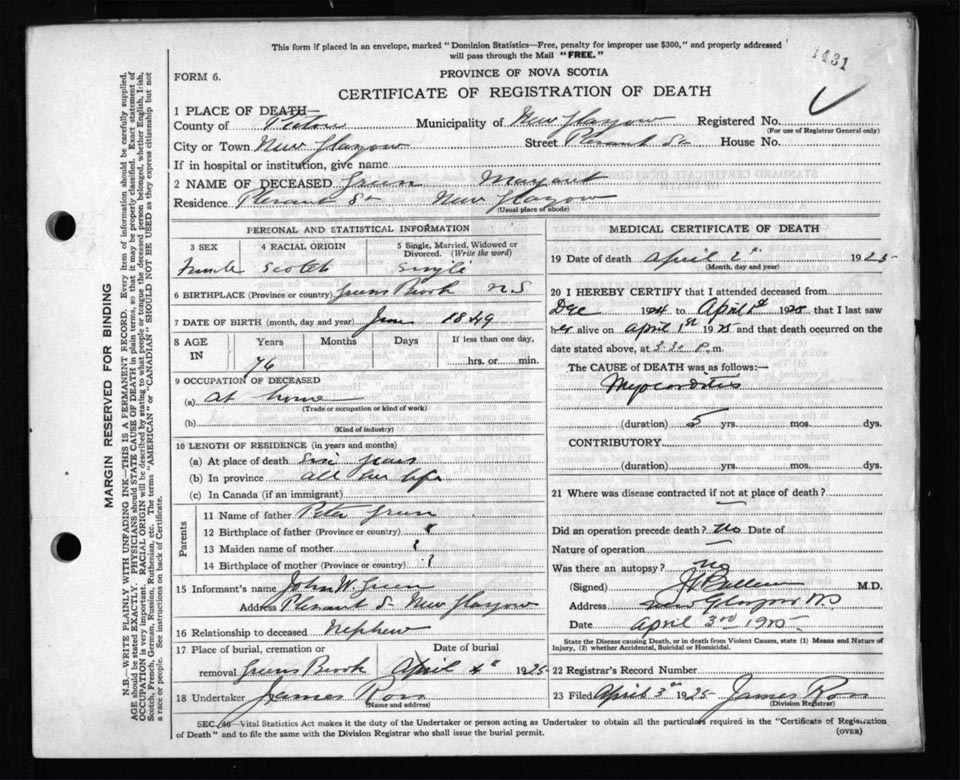 This form if placed in an envelope, marked "Dominion Statistics—Free, penalty for improper use $300," and properly addressed
will pass through the Mail "FREE."
1431
FORM 6.
PROVINCE OF NOVA SCOTIA
CERTIFICATE OF REGISTRATION OF DEATH
1 PLACE OF DEATH—
County of Pictou Municipality of New Glasgow Registered No.
(For use of Registrar General only)
City or Town New Glasgow Street Pleasant St House No.
If in hospital or institution, give name
2 NAME OF DECEASED Green Margaret
Residence Pleasant St New Glasgow
(Usual place of abode)
PERSONAL AND STATISTICAL INFORMATION
3 SEX 4 RACIAL ORIGIN 5 Single, Married, Widowed or
Divorced. (Write the word)
Female Scotch Single
6 BIRTHPLACE (Province or country) Greens Brook N S
7 DATE OF BIRTH (month, day and year) 1849
8 AGE IN Years Months Days If less than one day,
76 hrs. or min.
9 OCCUPATION OF DECEASED
(a) At home
(Trade or occupation or kind of work)
(b)
(Kind of industry)
10 LENGTH OF RESIDENCE (in years and months)
(a) At place of death years
(b) In province all her life
(c) In Canada (if an immigrant)
Parents
11 Name of father Peter Green
12 Birthplace of father (Province or country)
13 Maiden name of mother
14 Birthplace of mother (Province or country)
15 Informant's name John W. Green
Address Pleasant St New Glasgow
16 Relationship to deceased Nephew
17 Place of burial, cremation or Date of burial
removal Greens Brook April 4" 1925
18 Undertaker James Ross
(Name and address)
MEDICAL CERTIFICATE OF DEATH
19 Date of death April 2" 1925
(Month, day and year)
20 I HEREBY CERTIFY that I attended deceased from
Dec 1924 to April 1st 1925 that I last saw
her alive on April 1st 1925 and that death occurred on the
date stated above, at 3.30 P.m.
The CAUSE of DEATH was as follows:—
Myocarditis
(duration) 5 yrs. mos. dys.
CONTRIBUTORY
(duration) yrs. mos. dys.
21 Where was disease contracted if not at place of death?
Did an operation precede death? No Date of
Nature of operation
Was there an autopsy? no
(Signed) M.D.
Address New Glasgow N.S
Date April 3rd 1925
State the Disease causing Death, or in death from Violent Causes, state (1) Means and Nature of
Injury, (2) whether Accidental, Suicidal or Homicidal.
22 Registrar's Record Number
23 Filed April 3" 1925 James Ross
(Division Registrar)
SEC. 46—Vital Statistics Act makes it the duty of the Undertaker or person acting as Undertaker to obtain all the particulars required in the "Certificate of Registration
of Death" and to file the same with the Division Registrar who shall issue the burial permit.
(OVER)
MARGIN RESERVED FOR BINDING
N.B.—WRITE PLAINLY WITH UNFADING INK—THIS IS A PERMANENT RECORD. Every item of information should be carefully supplied.
AGE should be stated EXACTLY. PHYSICIANS should STATE CAUSE OF DEATH in plain terms, so that it may be properly classified. Exact statement of
OCCUPATION is very important. RACIAL ORIGIN will be described by stating to what people or tongue the deceased person belonged, whether English, Irish,
Scotch, French, German, Russian, Ruthenian, etc. The terms "AMERICAN" or "CANADIAN" SHOULD NOT BE USED as they express citizenship but not
a race or people. See instructions on back of Certificate.